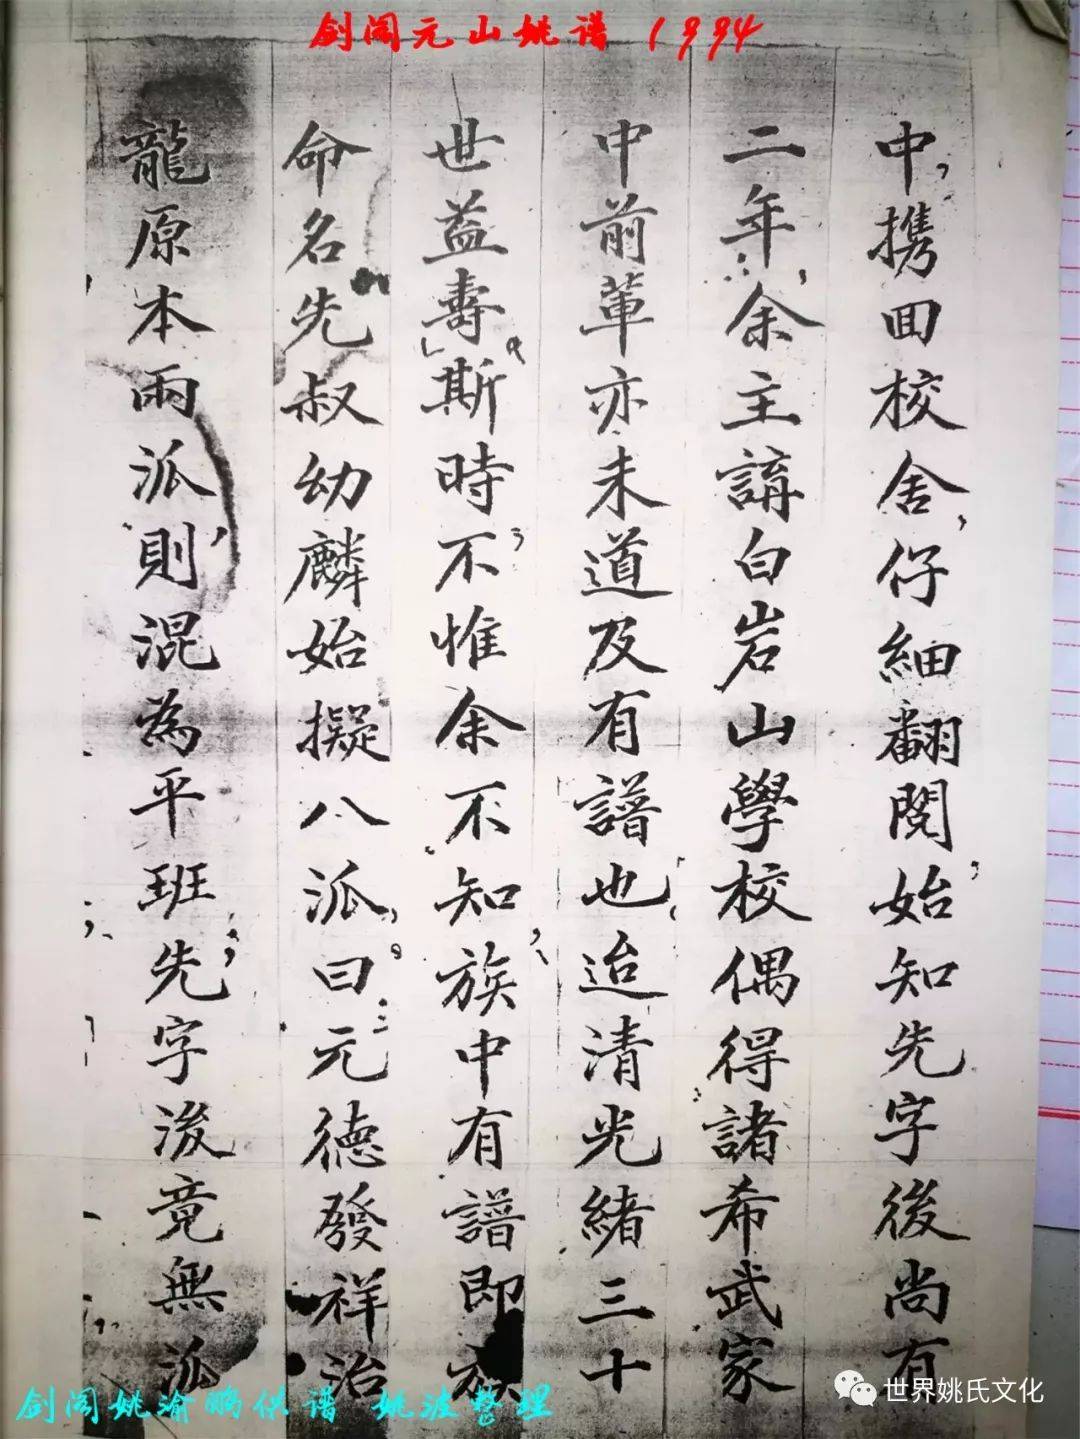 剑阁元山姚谱 1994
龍原本兩泒，則混為平班，先字後竟無泒
命名先叔幼麟始擬八泒，曰：元德發祥治
世益壽斯時，不惟余不知，族中有譜即族
中前輩亦未道及有譜也，迨清光緒三十
二年，余主講白岩山學校偶得諸希武家
中，携囬校舍，仔細翻閱，始知先字後尚有
剑阁姚渝鹏供谱 姚波整理
世界姚氏文化